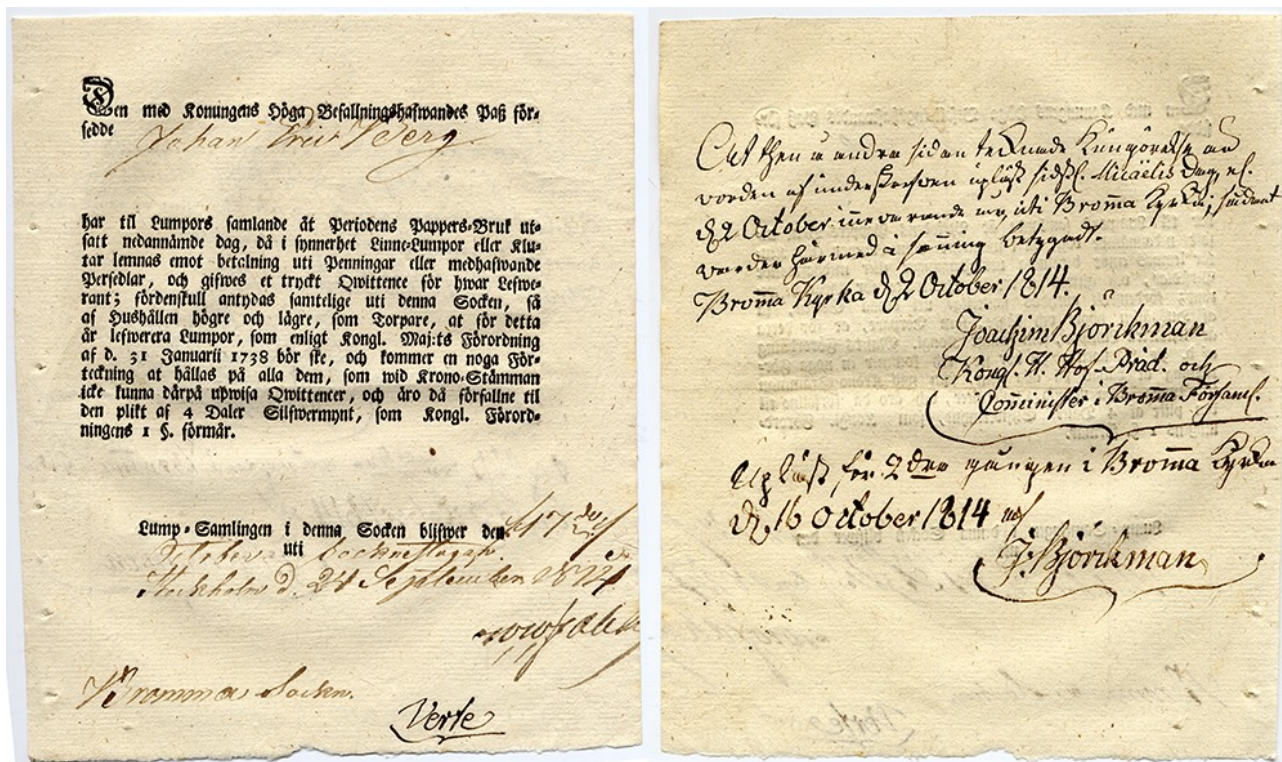 Den med Konungens Höga Befallningshafwandes Paß för-
sedde
Johan Berg
har til Lumpors samlande åt Periodens Pappers-Bruk ut-
satt nedannämde dag, då i synnerhet Linne-Lumpor eller Klu-
tar lemnas emot betalning uti Penningar eller medhafwande
Persedlar, och gifwes et tryckt Qwittence för hwar Lefwe-
rant; fördenskull antydas samtelige uti denna Socken, så
af Hushållen högre och lägre, som Torpare, at för detta
år lefwerera Lumpor, som enligt Kongl. Maj:ts Förordning
af d. 31 Januarii 1738 bör ske, och kommer en noga För-
teckning at hållas på alla dem, som wid Krono-Stämman
icke kunna därpå upwisa Qwittencer, och äro då förfallne til
den plikt af 4 Daler Silfwermynt, som Kongl. Förord-
ningens 1 §. förmår.
Lump-Samlingen i denna Socken blifwer den 17
October uti Socknestugan.
Stockholm d. 28 September 1814
Bromma Sockn.
Verte
At then å andra sidan tecknade Kungörelse
worden af underskrefwen upläst sidstl. Micaëlis Dag, el.
d. 2 October innewarande uti Bromma Kyrka; sådant
warder härmed i sanning betygadt.
Bromma Kyrka d. 2 October 1814.
Joachim Björckman
Kongl. H. Hof-Präd. och
Comminister i Bromma Församl.
Upläst för 2dra gången i Bromma Kyrka
d. 16 October 1814 af
J. Björckman